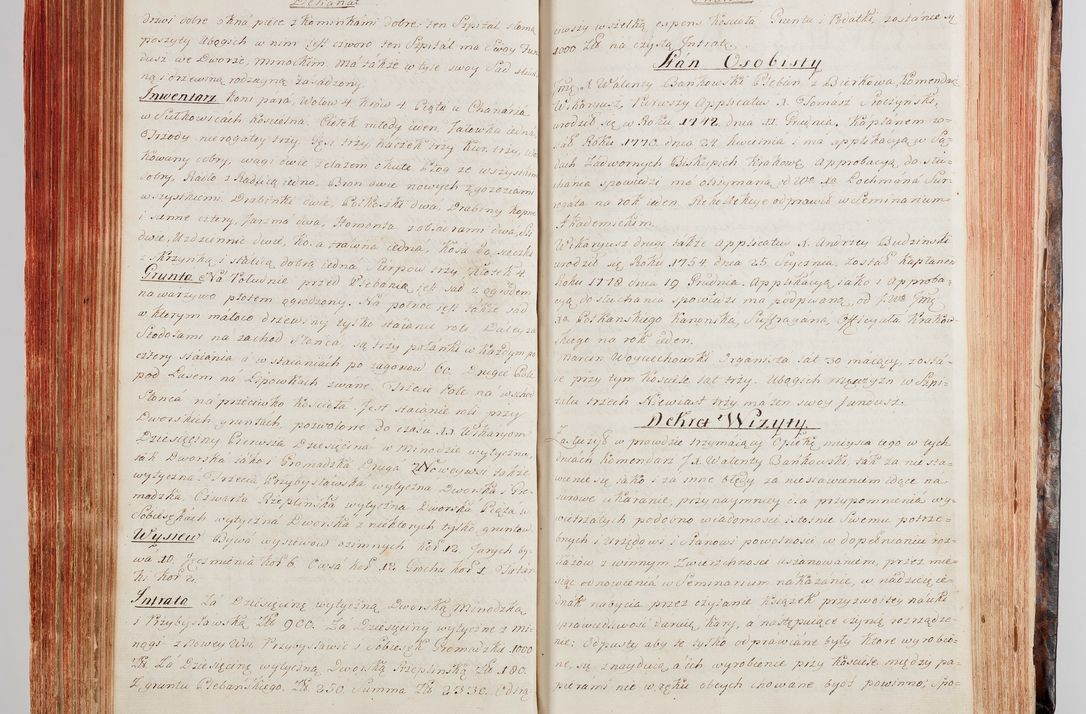 Dekanat
drzwi dobre okna piece z kominkami dobre. ten Szpital słomą
poszyty Ubogich w nim jest czworo ten Szpital ma swoy Fun
dusz we Dworze minockim. ma także w tyle swoy Sad
ną i drzewiną rodzayną zasadzony.
Inwentarz Koni para, Wołow 4 Krów 4 Piąta u Chmarza
w Sułkowicach Koscielna. Ciołek młody ieden, Jałowka iedna,
trzody nierogatey trzy, Gęsi trzy, kaczek trzy kur trzy, Wo
kowany dobry, wagi dwie żelazem okute Pług ze wszystkim
dobry, Radło z Radlicą iedno. Bron dwie nowych z gozdziami
wszystkiemi, Drabinki dwie, Półkoszki dwa, Drabiny kopne
i sienne cztery, Jarzma dwa, Homonta z obiciami dwa,
dwie, Uzdziennie dwie, Kosa trawna iedna, Kosa do sieczki
z skrzynką i stolicą dobrą iedna, Sierpow trzy, Motek 4
Grunta Na Południe przed Plebanią jest sad z ogrodem
na warzywo płotem ogrodzony. Na pułnoc jest także sad
w ktorym mało co drzewiny tylko staianie roli Daley za
Stodołami na zachod Słonca są trzy polanki w każdym po
cztery staiania a w staianiach po zagonów 60. Drugie Pole
pod Lasem na Lipowkach zwane. Trzecie Pole na wschod
Słonca naprzeciwko Kościoła. Jest staianie roli przy
Dworskich gruntach, pozwolone do czasu XX Wikaryom
Dziesięciny Pierwsza Dziesięcina w Minodze wytyczna,
tak Dworska iako i Gromadzka Druga z Noweywsi także
wytyczna. Trzecia Przybysławska wytyczna Dworska i Gro
madzka. Czwarta Rzeplinska wytyczna Dworska Piąta w
Sobiesękach wytyczna Dworska z niektorych tylko gruntow
Wysiew Bywa wysiewow ozimnych kor 12. Jarych by
wa 12 Jęczmienia kor 6. Owsa kor 12. Grochu kor 1. Tatar
ki kor 2.
Intrata Za Dziesięcinę wytyczną Dworską Minodzką
i Przybysławską Złł 900. Za Dziesięciny wytyczne z Mi
nogi z Nowey Wsi Przybysławic i Sobiesęk Gromadzkie 1000
Złł Za Dziesięcinę wytyczną Dworską Rzeplinską Złł 180.
Z gruntu Plebanskiego Złł 250. Summa Złł 2330. Odtrą
ciwszy wszelką expens Kościoła Gruntu i Podatki zostanie się
1000 Złł na czystą Intratę.
Stan Osobisty
Jmć X Walenty Bankowski Pleban z Bierkowa, Komendarz
Wikaryusz Pierwszy Applicatus X. Tomasz Stoczynski,
urodził się w Roku 1742. dnia 11 Grudnia. Kapłanem zo=
stał Roku 1770. dnia 24 kwietnia i ma applikacyą w Są=
dach Zadwornych Biskupich Krakows. approbacyą do słu=
chania spowiedzi ma otrzymaną od Wo Xa Lochmana Sur
rogata na rok ieden. Rekollekcye odprawił w Seminarium
Akademickim.
Wikaryusz drugi także applicatus X. Andrzey Budzinski
urodził się Roku 1754. dnia 25 Stycznia, został Kapłanem
Roku 1778 dnia 19 Grudnia, applikacyą iako i approba=
cyą do słuchania spowiedzi ma podpisaną od JWo Jmć
Xa Potkanskiego Kanonika, Suffragana, Officyała Krakow
skiego na rok ieden.
Marcin Woyciechowski Organista lat 30 maiący, zosta=
ie przy tym Kościele lat trzy. Ubogich męzczyzn w Szpi=
talu trzech Kiewiast trzy ma ten swoy Fundusz.
Dekret Wizyty
Zasłużył wprawdzie trzymaiący Opiekę mieysca tego w tych
dniach Komendarz JX. Walenty Bańkowski, tak za niesta=
wienie się iako i za inne błędy za niestawieniem idące na
surowe ukaranie, przynaymniey dla przypomnienia wy=
wietrzałych podobno wiadomości istotnie swemu potrze=
bnych Urzędowi i Stanowi powolności w dopełnianiu roz=
kazów z winnym Zwierzchności uszanowaniem, przez mie=
siąc odnowienia w Seminarium nakazanie, w nadzieię ie=
dnak nabycia przez czytanie książek przyzwoitey nauki
sprawiedliwość daruie kary, a następuiące czynię rozrządze=
nie: Odpusty aby te tylko odprawiane były, ktore wyrobio=
ne, są i znayduią, a ich wyrobienie przy kościele między pa=
pierami nie w ręku obcych chowane bydź powinno; Spo=